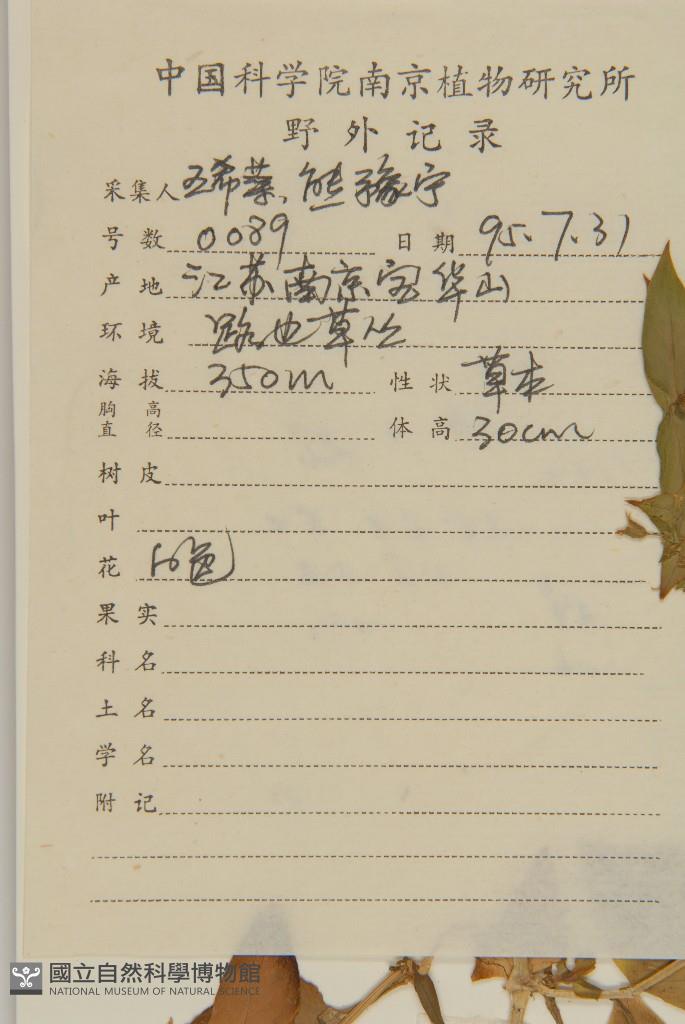 中国科学院南京植物研究所
野外记录
采集人 王希蓁、熊豫宁
号数 0089 日期 95.7.31
产地 江苏南京宝华山
环境 路边草丛
海拔 350m 性状 草本
胸高直径 体高 30cm
树皮
叶
花 白色
果实
科名
土名
学名
附记
國立自然科學博物館
NATIONAL MUSEUM OF NATURAL SCIENCE